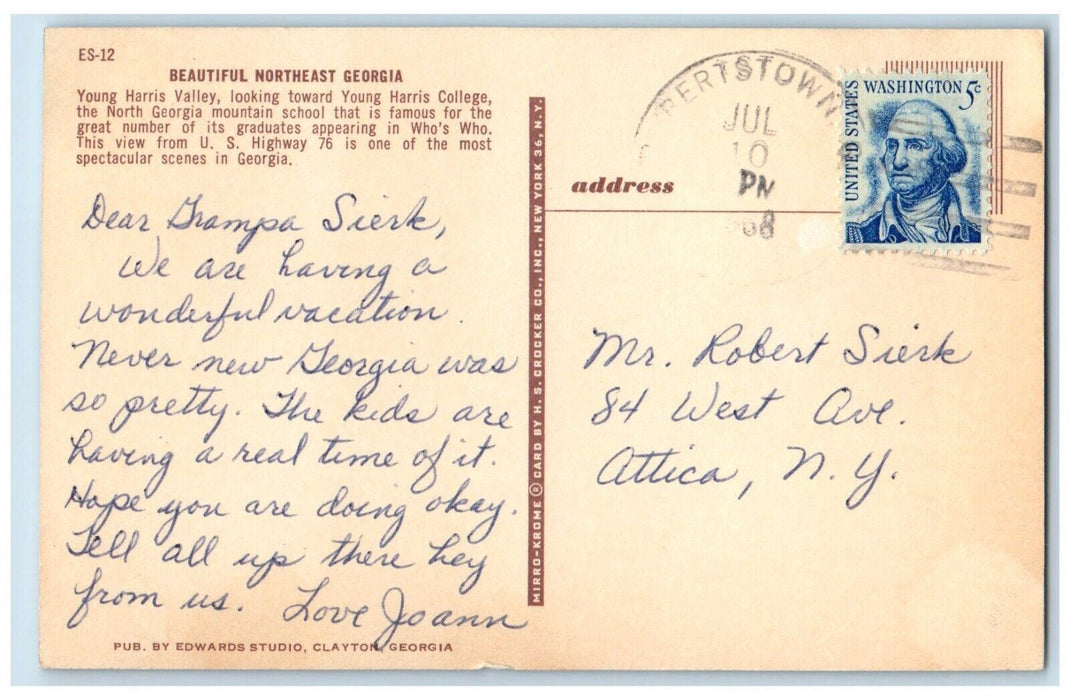 ES-12
BEAUTIFUL NORTHEAST GEORGIA
Young Harris Valley, looking toward Young Harris College,
the North Georgia mountain school that is famous for the
great number of its graduates appearing in Who's Who.
This view from U. S. Highway 76 is one of the most
spectacular scenes in Georgia.
Dear Grampa Sierk,
We are having a
wonderful vacation.
Never new Georgia was
so pretty. The kids are
having a real time of it.
Hope you are doing okay.
Tell all up there hey
from us. Love Joann
PUB. BY EDWARDS STUDIO, CLAYTON, GEORGIA
MIRRO-KROME ® CARD BY H. S. CROCKER CO., INC., NEW YORK 36, N.Y.
address
BERTSTOWN
JUL
10
PM
68
UNITED STATES
WASHINGTON 5c
Mr. Robert Sierk
84 West Ave.
Attica, N. Y.